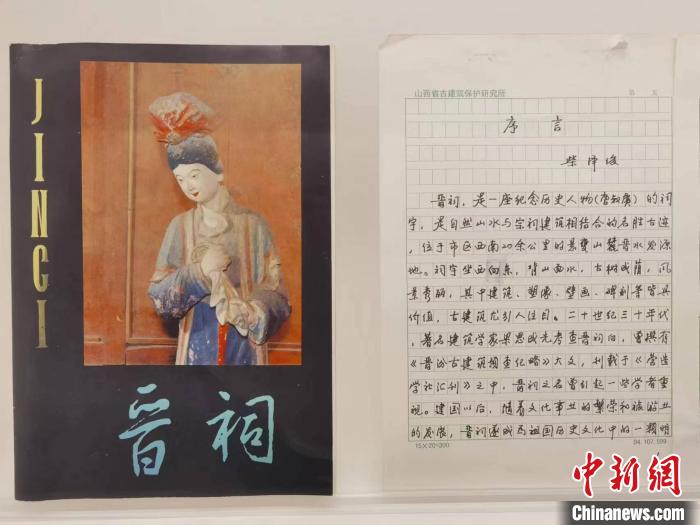 JINCI
晋祠
山西省古建筑保护研究所
第 页
序言
柴泽俊
晋祠，是一座纪念历史人物(唐叔虞)的祠
宇，是自然山水与宗祠建筑相结合的名胜古迹，
位于市区西南20余公里的悬瓮山麓晋水发源
地。祠宇坐西向东，背山面水，古树成荫，风
景秀丽，其中建筑、塑像、壁画、碑刻等皆具
价值，古建筑尤引人注目。二十世纪三十年代，
著名建筑学家梁思成先生考查晋祠后，曾撰有
《晋汾古建筑预查纪略》大文，刊载于《营造
学社汇刊》之中，晋祠之名曾引起一些学者重
视。建国以后，随着文化事业的繁荣和旅游业
的发展，晋祠遂成为祖国历史文化中的一颗明
15×20=300
94.107.599
中新网
www.chinanews.com.cn